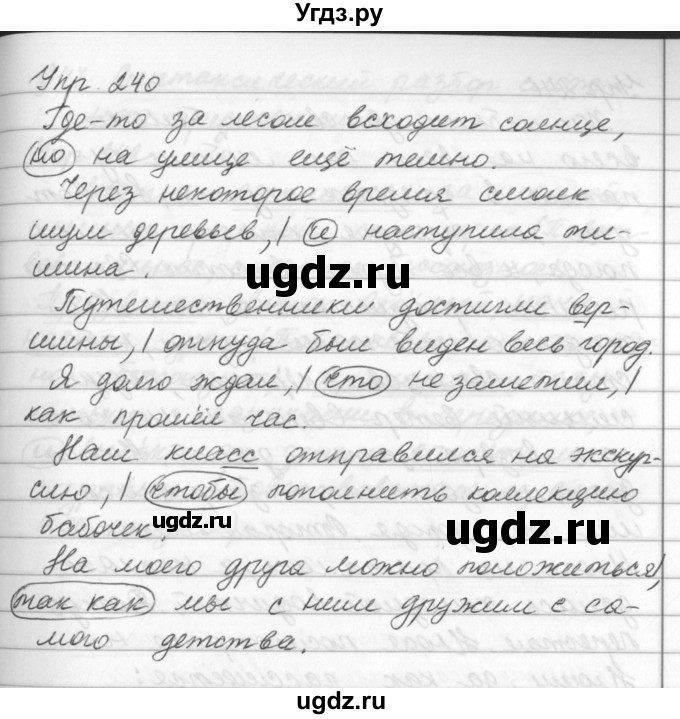 Угдз.ру
Упр. 240
Где-то за лесом всходит солнце,
но на улице ещё темно.
Через некоторое время смолк
шум деревьев, | и наступила ти-
шина.
ugdz.ru ugdz.ru
Путешественники достигли вер-
шины, | откуда был виден весь город.
Я долго ждал, | что не заметил, |
как прошёл час.
Наш класс отправился на экскур-
сию, | чтобы пополнить коллекцию
бабочек.
ugdz.ru ugdz.ru
На моего друга можно положиться|,
так как мы с ним дружим с са-
мого детства.
ugdz.ru
ugdz.ru